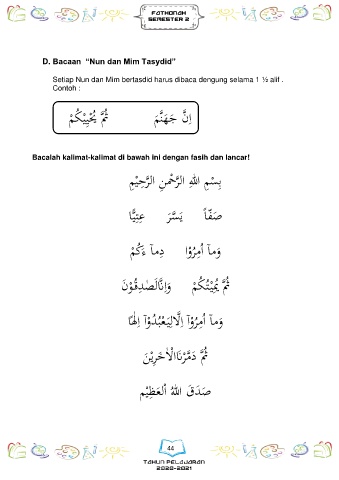 FATHONAH
SEMESTER 2
D. Bacaan “Nun dan Mim Tasydid”
Setiap Nun dan Mim bertasdid harus dibaca dengung selama 1 ½ alif .
Contoh :
اِنَّ جَهَنَّمَ ثُمَّ يُحْيِيْكُمْ
Bacalah kalimat-kalimat di bawah ini dengan fasih dan lancar!
بِسْمِ اللهِ الرَّحْمٰنِ الرَّحِيْمِ
صَفًّا يَسَّرَ عِتِيًّا
وَمآ اُمِرُوْا دِمآ ءَكُمْ
ثُمَّ يُمِيْتُكُمْ وَاِنَّالَصٰدِقُوْنَ
وَمآ اُمِرُوْآ اِلَّالِيَعْبُدُوْآ اِلٰهًا
ثُمَّ دَمَّرْنَاالْاٰخَرِيْنَ
صَدَقَ اللهُ الْعَظِيْمِ
44
TAHUN PELAJARAN
2020-2021